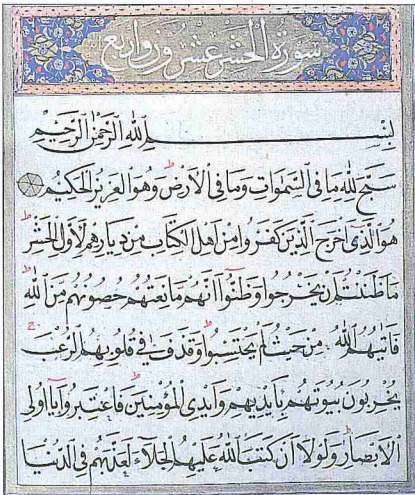 سورة الحشر عشرون واربع
بِسْمِ اللهِ الرَّحْمٰنِ الرَّحِيمِ
سَبَّحَ لِلّٰهِ مَا فِي السَّمٰوَاتِ وَمَا فِي الْاَرْضِ وَهُوَ الْعَزِيزُ الْحَكِيمُ
هُوَ الَّذِي اَخْرَجَ الَّذِينَ كَفَرُوا مِنْ اَهْلِ الْكِتَابِ مِنْ دِيَارِهِمْ لِاَوَّلِ الْحَشْرِ
مَا ظَنَنْتُمْ اَنْ يَخْرُجُوا وَظَنُّوا اَنَّهُمْ مَانِعَتُهُمْ حُصُونُهُمْ مِنَ اللهِ
فَاَتٰيهُمُ اللهُ مِنْ حَيْثُ لَمْ يَحْتَسِبُوا وَقَذَفَ فِي قُلُوبِهِمُ الرُّعْبَ
يُخْرِبُونَ بُيُوتَهُمْ بِاَيْدِيهِمْ وَاَيْدِي الْمُؤْمِنِينَ فَاعْتَبِرُوا يَا اُولِي
الْاَبْصَارِ وَلَوْلَا اَنْ كَتَبَ اللهُ عَلَيْهِمُ الْجَلَاءَ لَعَذَّبَهُمْ فِي الدُّنْيَا